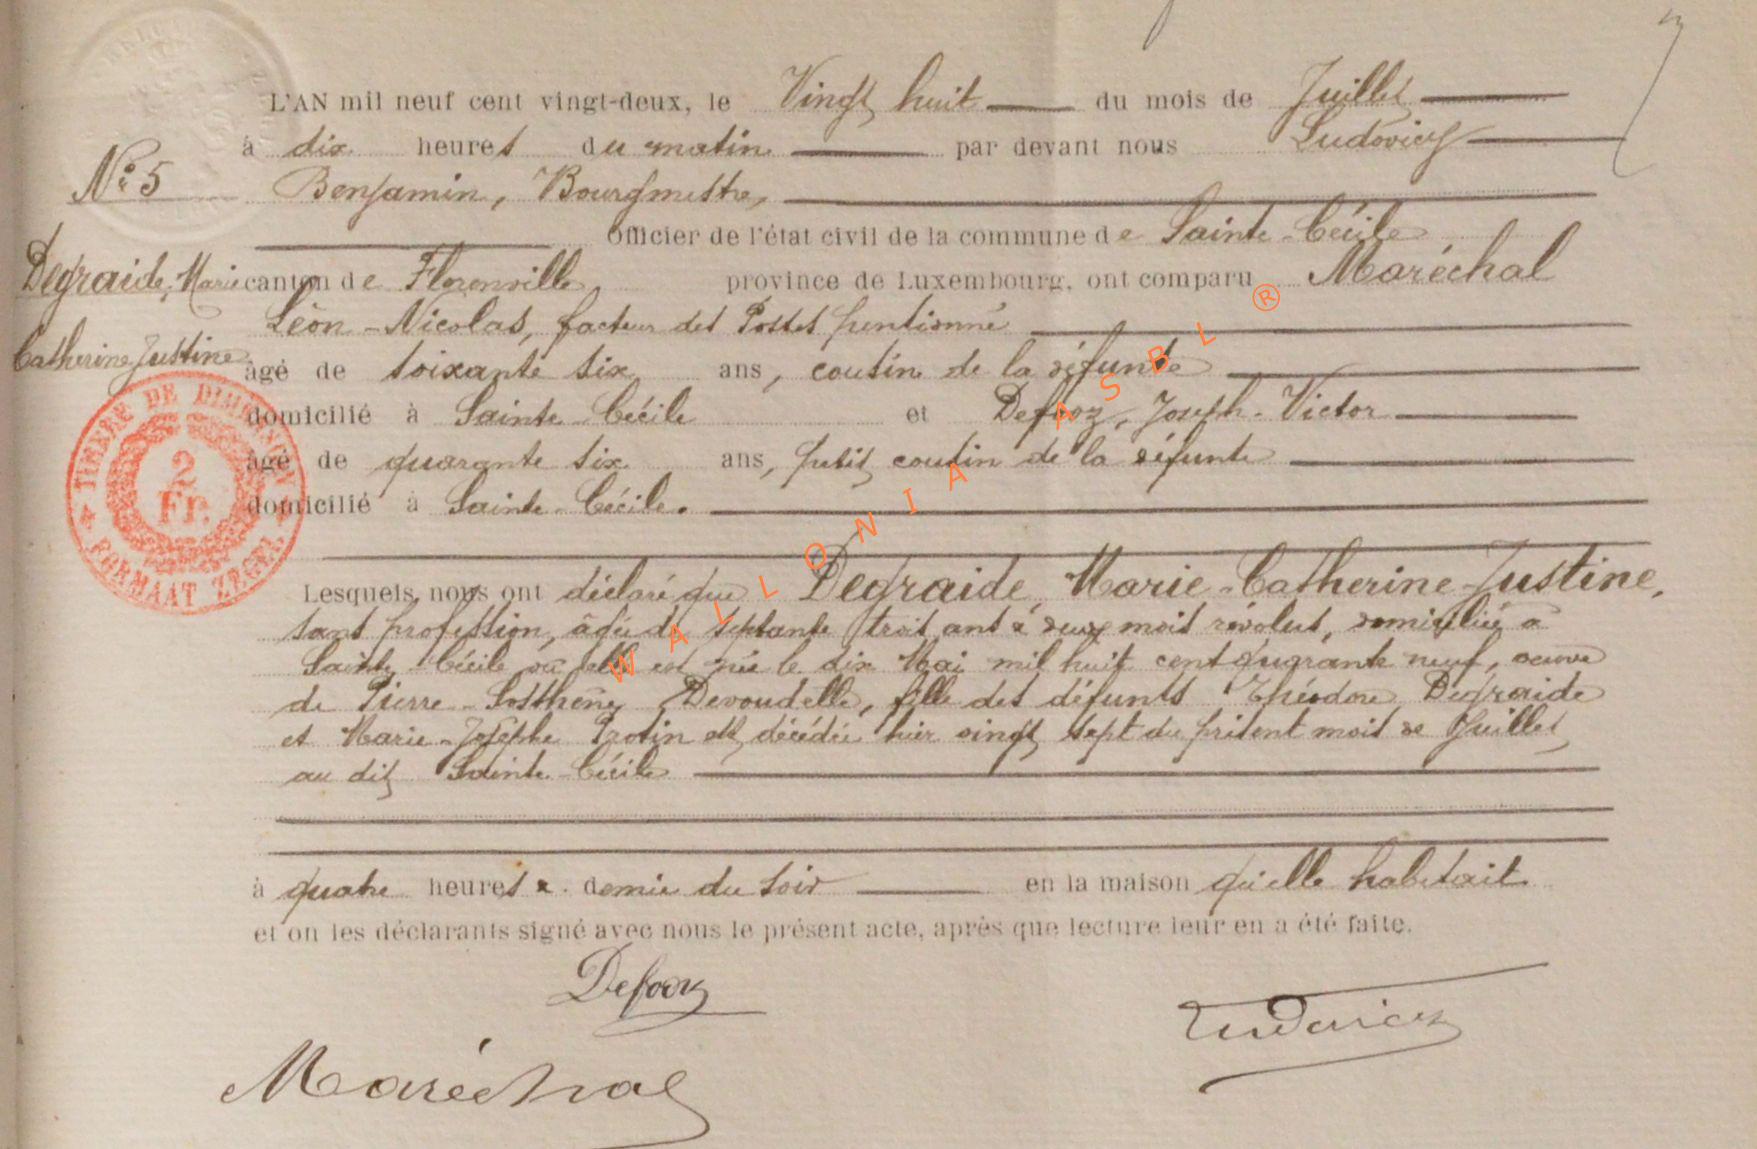 L'AN mil neuf cent vingt-deux, le Vingt huit du mois de Juillet
à dix heures du matin par devant nous Ludovicy
N° 5 Benjamin, Bourgmestre,
Officier de l'état civil de la commune de Sainte-Cécile
Degraide, Marie canton de Florenville province de Luxembourg, ont comparu Maréchal
Léon-Nicolas, facteur des Postes pensionné
Catherine Justine
âgé de soixante six ans, cousin de la défunte
domicilié à Sainte Cécile et Defooz, Joseph-Victor
âgé de quarante six ans, petit cousin de la défunte
domicilié à Sainte-Cécile.
TIMBRE DE DIMENSION
2
Fr.
FORMAAT ZEGEL
Lesquels nous ont déclaré que Degraide Marie-Catherine-Justine,
sans profession, âgée de septante trois ans & deux mois révolus, domiciliée à
Sainte Cécile où elle est née le dix Mai mil huit cent quarante neuf, veuve
de Pierre-Sosthène Devoudelle, fille des défunts Théodore Degraide
et Marie-Josèphe Protin est décédée hier vingt sept du présent mois de Juillet
au dit Sainte-Cécile
à quatre heures & demie du soir en la maison qu'elle habitait
et on les déclarants signé avec nous le présent acte, après que lecture leur en a été faite.
Defooz
Ludovicy
Maréchal
WALLONIA ASBL ®